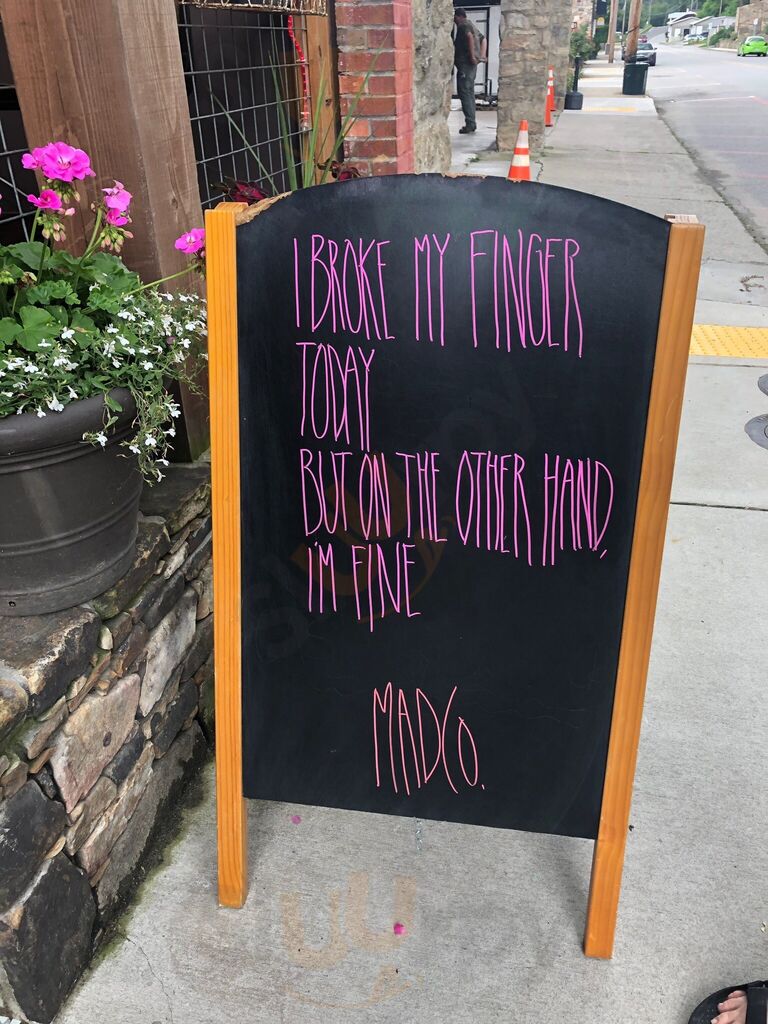 I BROKE MY FINGER
TODAY
BUT ON THE OTHER HAND,
I'M FINE
MADCO.